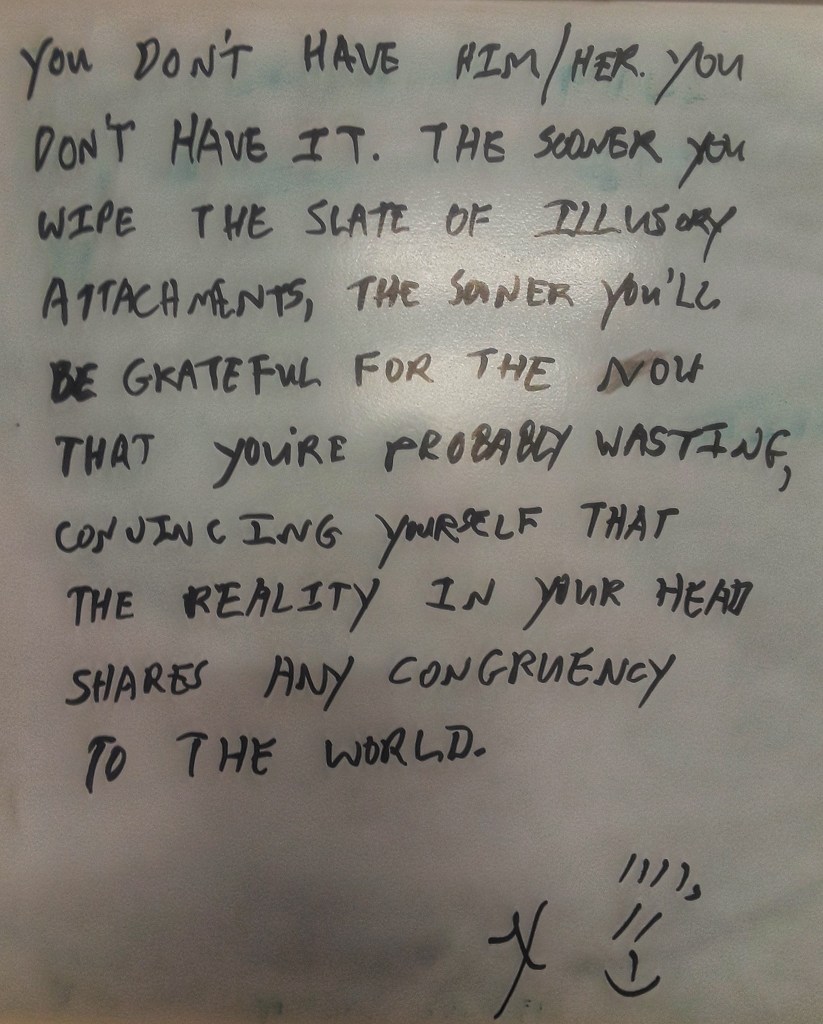 YOU DON'T HAVE HIM/HER. YOU
DON'T HAVE IT. THE SOONER YOU
WIPE THE SLATE OF ILLUSORY
ATTACHMENTS, THE SOONER YOU'LL
BE GRATEFUL FOR THE NOW
THAT YOU'RE PROBABLY WASTING,
CONVINCING YOURSELF THAT
THE REALITY IN YOUR HEAD
SHARES ANY CONGRUENCY
TO THE WORLD.